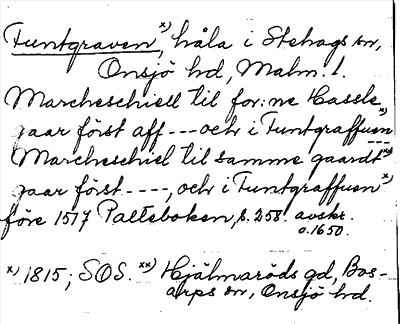 Tuntgraven x), håla i Stehags sn,
Onsjö hd, Malm. l.
Marcheschiell til for:ne Hassle
gaar först aff --- och i Tuntgraffuen x)
---
Marcheschiel til samme gaardt xx)
gaar först ----, och i Tuntgraffuen x)
före 1517 Palteboken, s. 258. avskr.
o. 1650.
x) 1815; SOS. xx) Hjälmaröds gd, Bos-
arps sn, Onsjö hd.